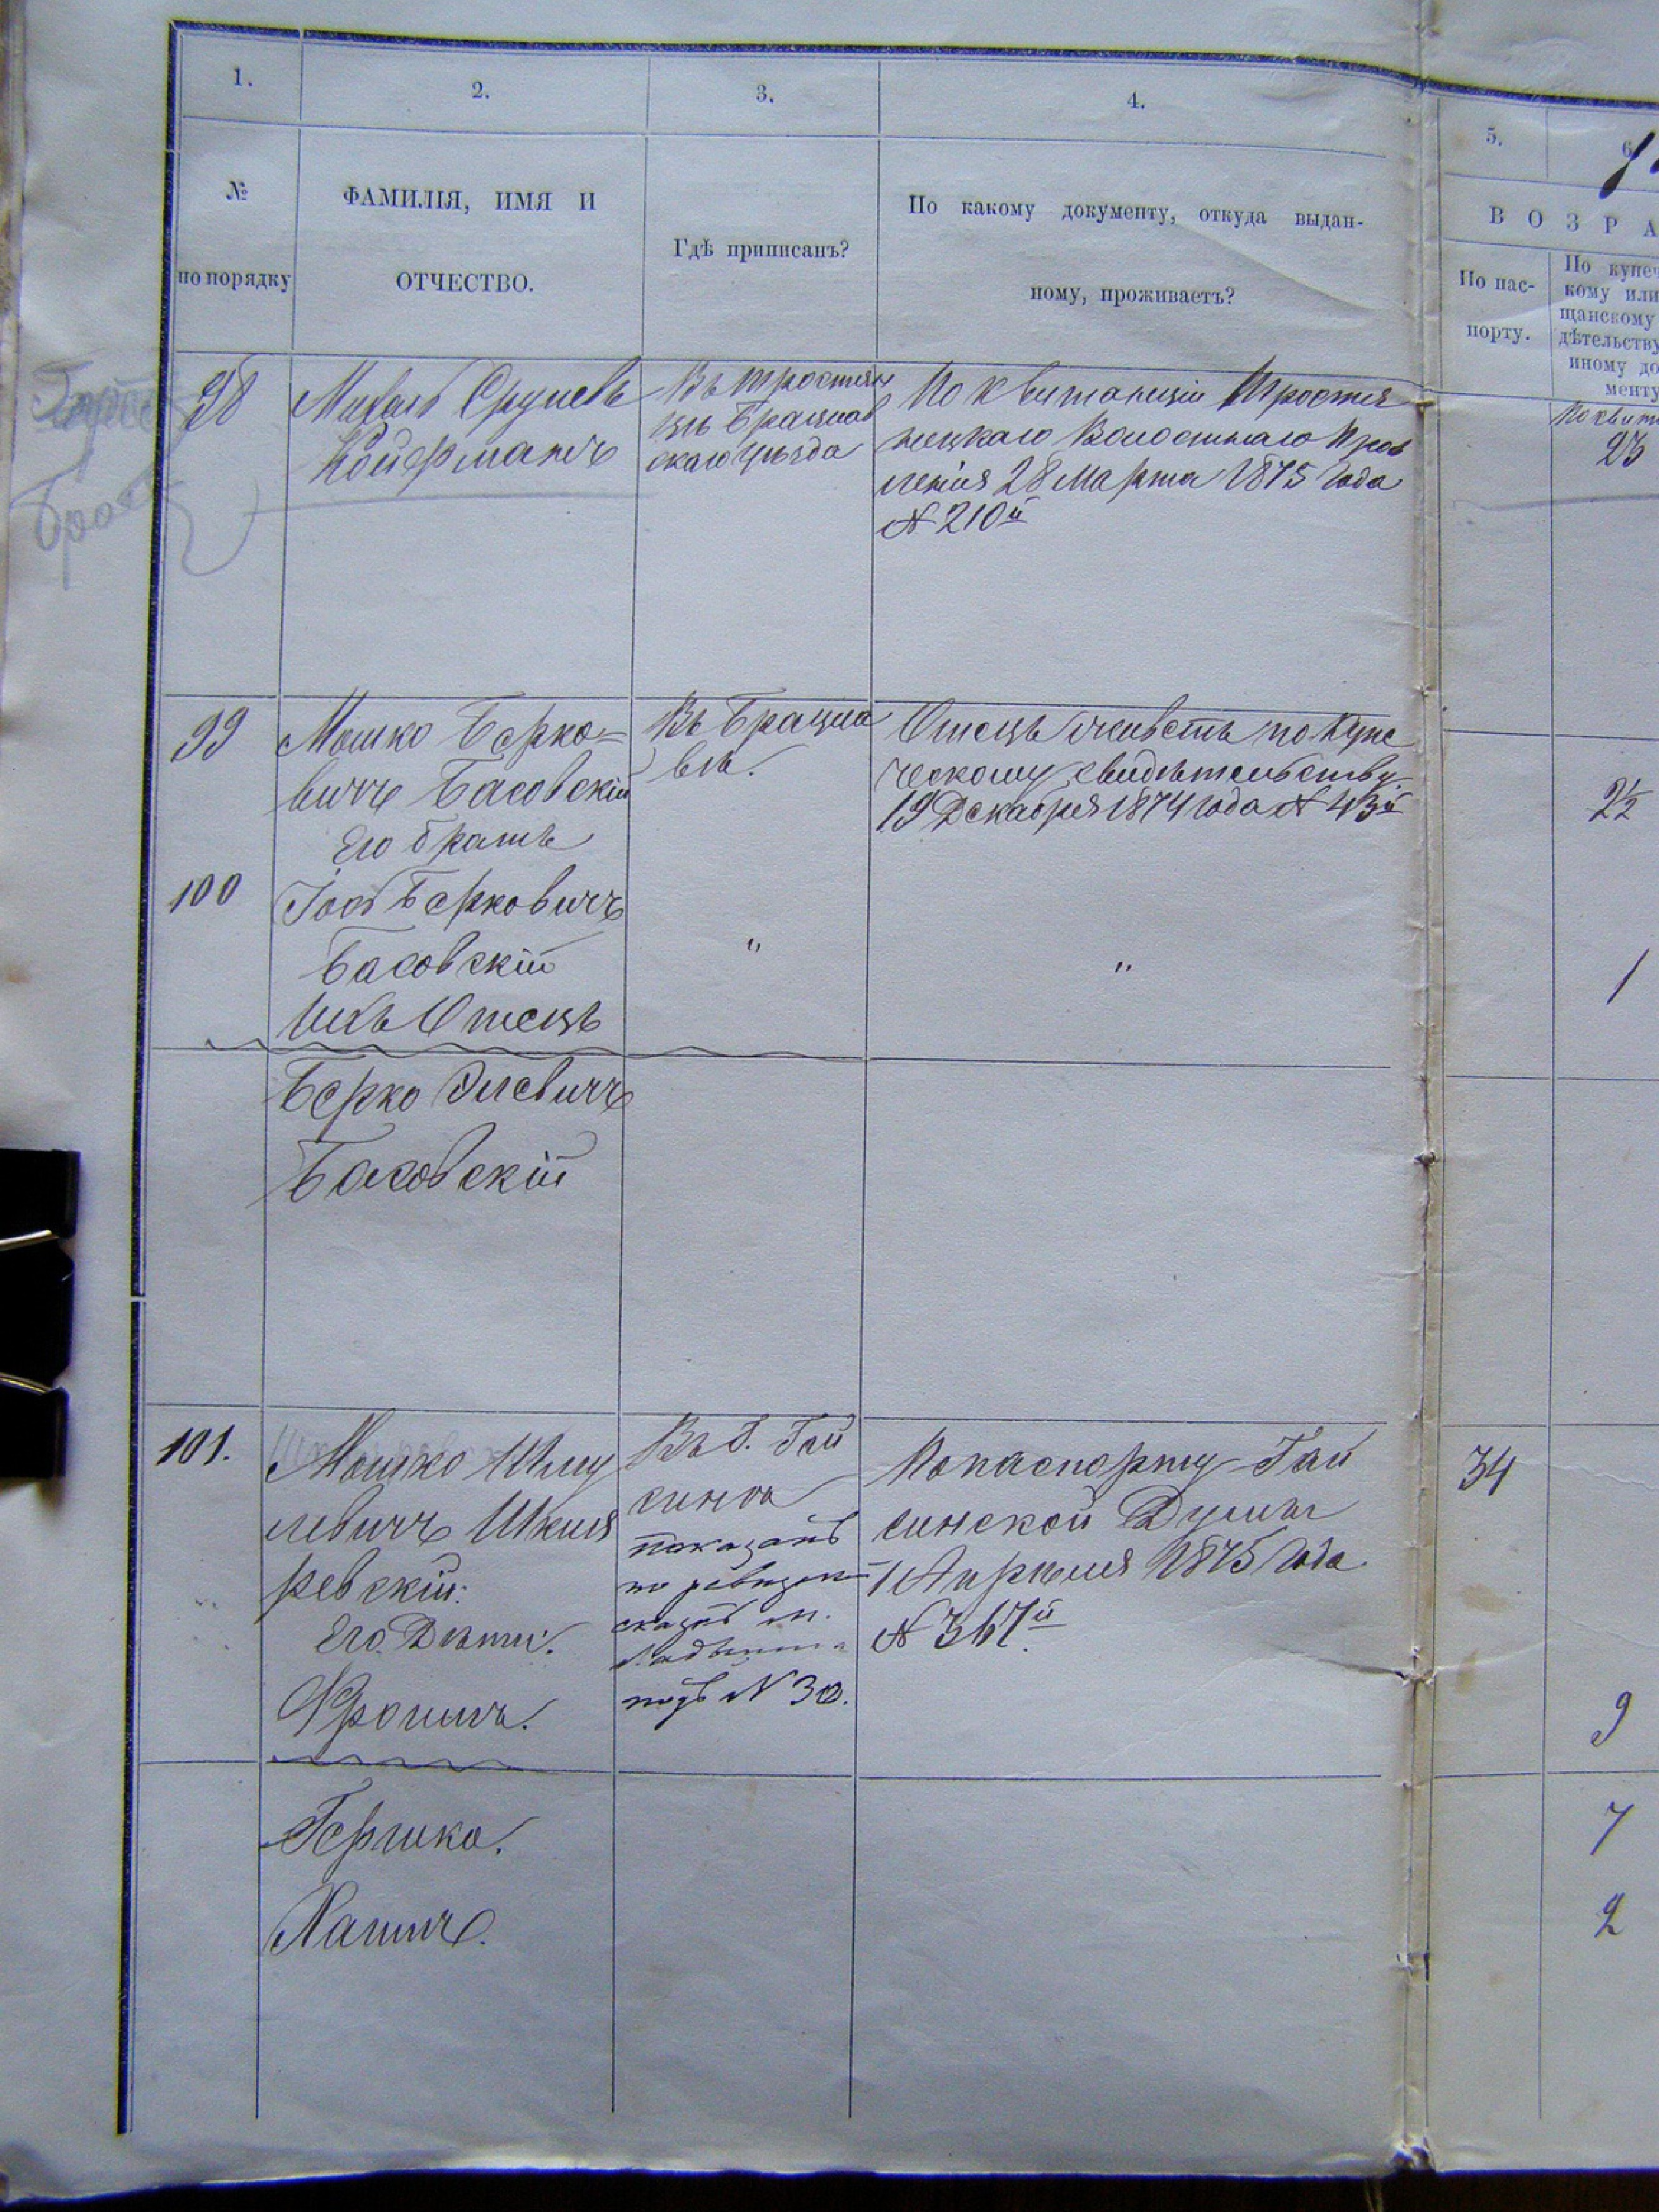 1.
2.
3.
4.
5.
6
№
по порядку
ФАМИЛІЯ, ИМЯ И
ОТЧЕСТВО.
Гдѣ приписанъ?
По какому документу, откуда выдан-
ному, проживаетъ?
ВОЗРА
По пас-
порту.
По купеч
кому или
щанскому
дѣтельству
иному до
менту
98
Койферманъ
Въ Тростян
цѣ Брацлав
скаго уѣзда
По Квитанціи Тростя
нецкаго Волостнаго Прав
ленія 28 Марта 1875 года
№ 210й
По квит
23
99
Мошко Берко-
вичъ Басовскій
Его братъ
Въ Брацла
влѣ.
Отецъ живетъ по Купе
ческому свидѣтельству
19 Декабря 1874 года № 43й
2½
100
Берковичъ
Басовскій
Ихъ Отецъ
"
"
1
Берко
Басовскій
101.
Мошко Шму
левичъ Шкля
ревскій:
Его Дѣти:
Фроимъ.
Въ г. Гай
синѣ
показанъ
по ревизс
сказкѣ м.
подъ № 30.
По паспорту Гай
синской Думы
1 Апрѣля 1875 года
№ 367й
34
9
Гершко.
7
Хаимъ.
2